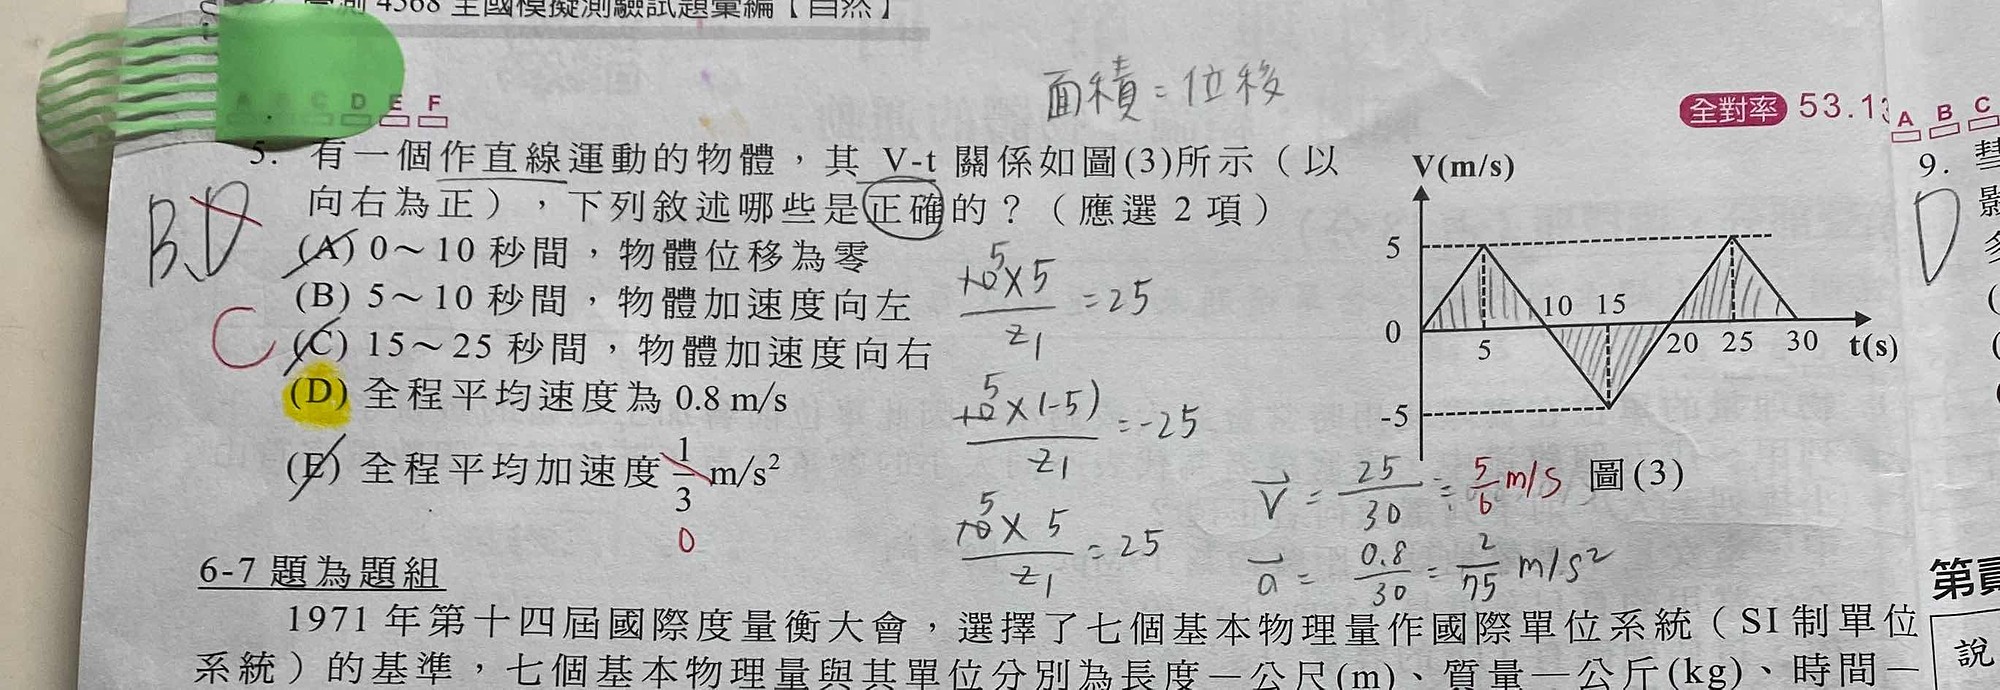 學測 4568 全國模擬測驗試題彙編【自然】
面積=位移
C D E F
全對率 53.13
A B C
5. 有一個作直線運動的物體，其 V-t 關係如圖(3)所示（以
向右為正），下列敘述哪些是正確的？（應選 2 項）
B、D
C
(A) 0～10 秒間，物體位移為零
(B) 5～10 秒間，物體加速度向左
(C) 15～25 秒間，物體加速度向右
(D) 全程平均速度為 0.8 m/s
(E) 全程平均加速度 1/3 m/s²
0
10 5×5 / 2 1 = 25
10 5×(-5) / 2 1 = -25
10 5×5 / 2 1 = 25
V = 25/30 = 5/6 m/s
a = 0.8/30 = 2/75 m/s²
V(m/s)
5
10 15
0
5
20 25 30 t(s)
-5
圖(3)
9. 彗
影
多
D
6-7 題為題組
1971 年第十四屆國際度量衡大會，選擇了七個基本物理量作國際單位系統（SI 制單位
系統）的基準，七個基本物理量與其單位分別為長度－公尺(m)、質量－公斤(kg)、時間－
第貳
說